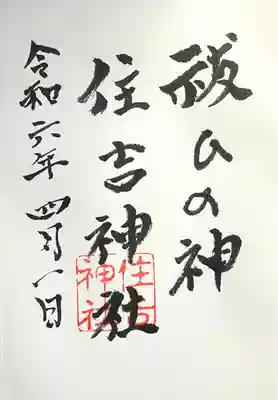 祓ひの神
住吉神社
令和六年 四月一日
住吉神社